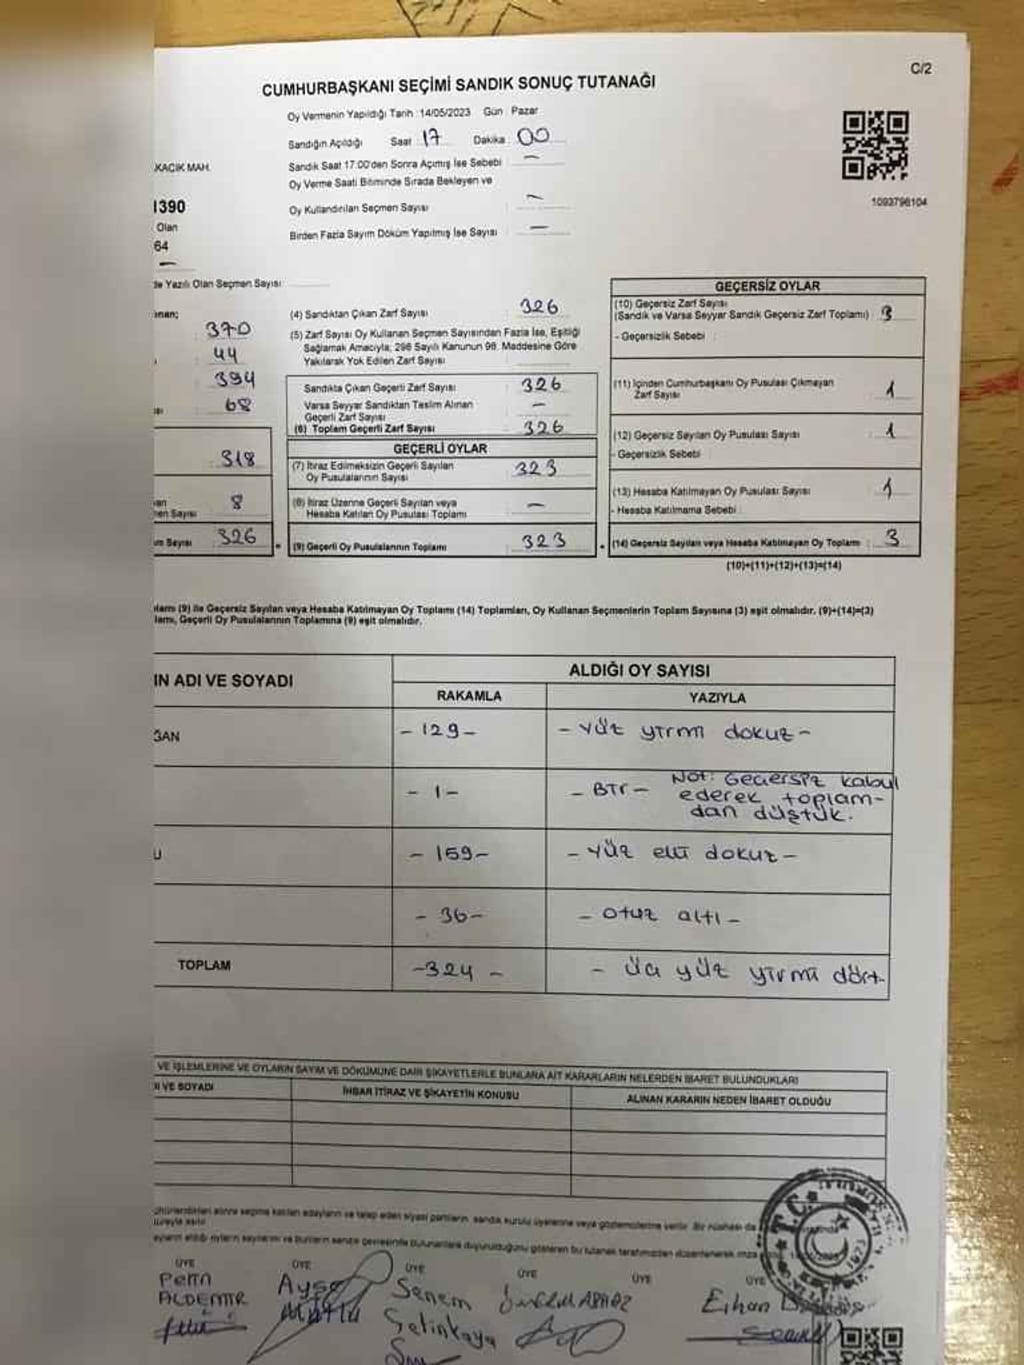 C/2
CUMHURBAŞKANI SEÇİMİ SANDIK SONUÇ TUTANAĞI
Oy Vermenin Yapıldığı Tarih : 14/05/2023 Gün : Pazar
Sandığın Açıldığı Saat 17 Dakika 00
KACIK MAH.
Sandık Saat 17:00'den Sonra Açımış İse Sebebi —
Oy Verme Saati Bitiminde Sırada Bekleyen ve
Oy Kullandırılan Seçmen Sayısı —
1093796104
1390
Olan
64
—
Birden Fazla Sayım Döküm Yapılmış İse Sayısı —
de Yazılı Olan Seçmen Sayısı:
370
44
394
68
318
8
men Sayısı
326
(4) Sandıktan Çıkan Zarf Sayısı : 326
(5) Zarf Sayısı Oy Kullanan Seçmen Sayısından Fazla İse, Eşitliği
Sağlamak Amacıyla; 298 Sayılı Kanunun 98. Maddesine Göre
Yakılarak Yok Edilen Zarf Sayısı
Sandıkta Çıkan Geçerli Zarf Sayısı : 326
Varsa Seyyar Sandıktan Teslim Alınan
Geçerli Zarf Sayısı —
(6) Toplam Geçerli Zarf Sayısı : 326
GEÇERLİ OYLAR
(7) İtiraz Edilmeksizin Geçerli Sayılan
Oy Pusulalarının Sayısı 323
(8) İtiraz Üzerine Geçerli Sayılan veya
Hesaba Katılan Oy Pusulası Toplamı —
(9) Geçerli Oy Pusulalarının Toplamı 323
GEÇERSİZ OYLAR
(10) Geçersiz Zarf Sayısı
(Sandık ve Varsa Seyyar Sandık Geçersiz Zarf Toplamı) :
- Geçersizlik Sebebi :
(11) İçinden Cumhurbaşkanı Oy Pusulası Çıkmayan
Zarf Sayısı : 1
(12) Geçersiz Sayılan Oy Pusulası Sayısı : 1
- Geçersizlik Sebebi :
(13) Hesaba Katılmayan Oy Pusulası Sayısı : 1
- Hesaba Katılmama Sebebi :
(14) Geçersiz Sayılan veya Hesaba Katılmayan Oy Toplamı : 3
(10)+(11)+(12)+(13)=(14)
(9) ile Geçersiz Sayılan veya Hesaba Katılmayan Oy Toplamı (14) Toplamları, Oy Kullanan Seçmenlerin Toplam Sayısına (3) eşit olmalıdır. (9)+(14)=(3)
Geçerli Oy Pusulaları Toplamına (9) eşit olmalıdır.
IN ADI VE SOYADI
ALDIĞI OY SAYISI
RAKAMLA YAZIYLA
ĞAN - 129 - - Yüz yirmi dokuz -
- 1 - - Bir - Not: Geçersiz kabul
ederek toplam-
dan düştük.
U - 159 - - Yüz elli dokuz -
- 36 - - otuz altı -
TOPLAM - 324 - - üç yüz yirmi dört -
VE İŞLEMLERİNE VE OYLARIN SAYIM VE DÖKÜMÜNE DAİR ŞİKAYETLERLE BUNLARA AİT KARARLARIN NELERDEN İBARET BULUNDUKLARI
I VE SOYADI İHBAR İTİRAZ VE ŞİKAYETİN KONUSU ALINAN KARARIN NEDEN İBARET OLDUĞU
T.C.
ÜYE ÜYE ÜYE ÜYE ÜYE ÜYE
ALDEMİR
Ayşe
Mutlu
Senem
Çetinkaya
Erhan